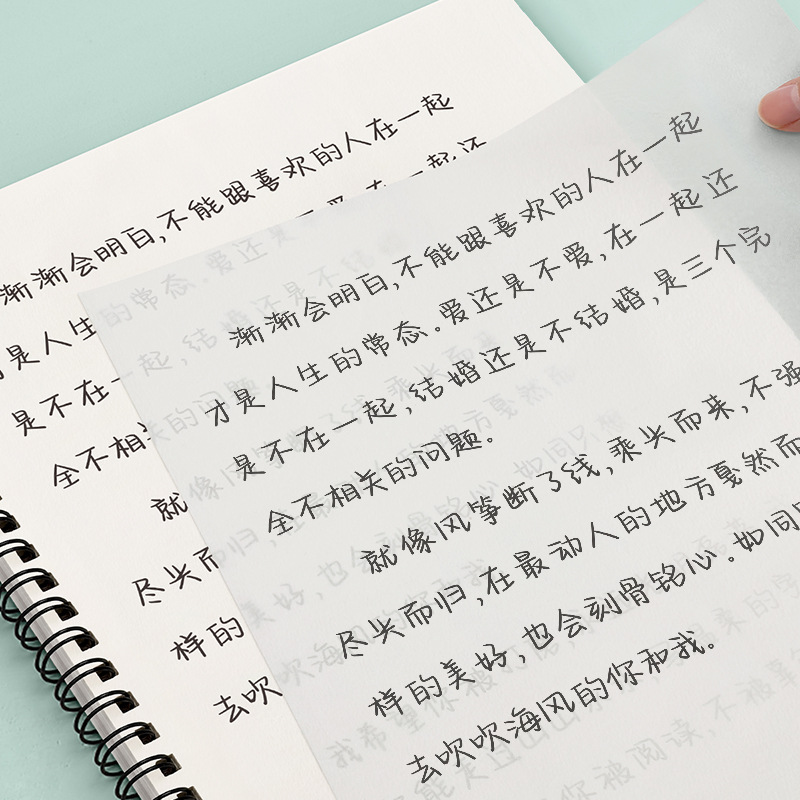 渐渐会明白,不能跟喜欢的人在一起
是人生
是不在一
全不相
就
尽兴而
样的
去吹
渐渐会明白,不能跟喜欢的人在一起
才是人生的常态。爱还是不爱,在一起还
是不在一起,结婚还是不结婚,是三个完
全不相关的问题。
就像风筝断了线,乘兴而来,不强
尽兴而归,在最动人的地方戛然而
样的美好,也会刻骨铭心。如同
去吹吹海风的你和我。